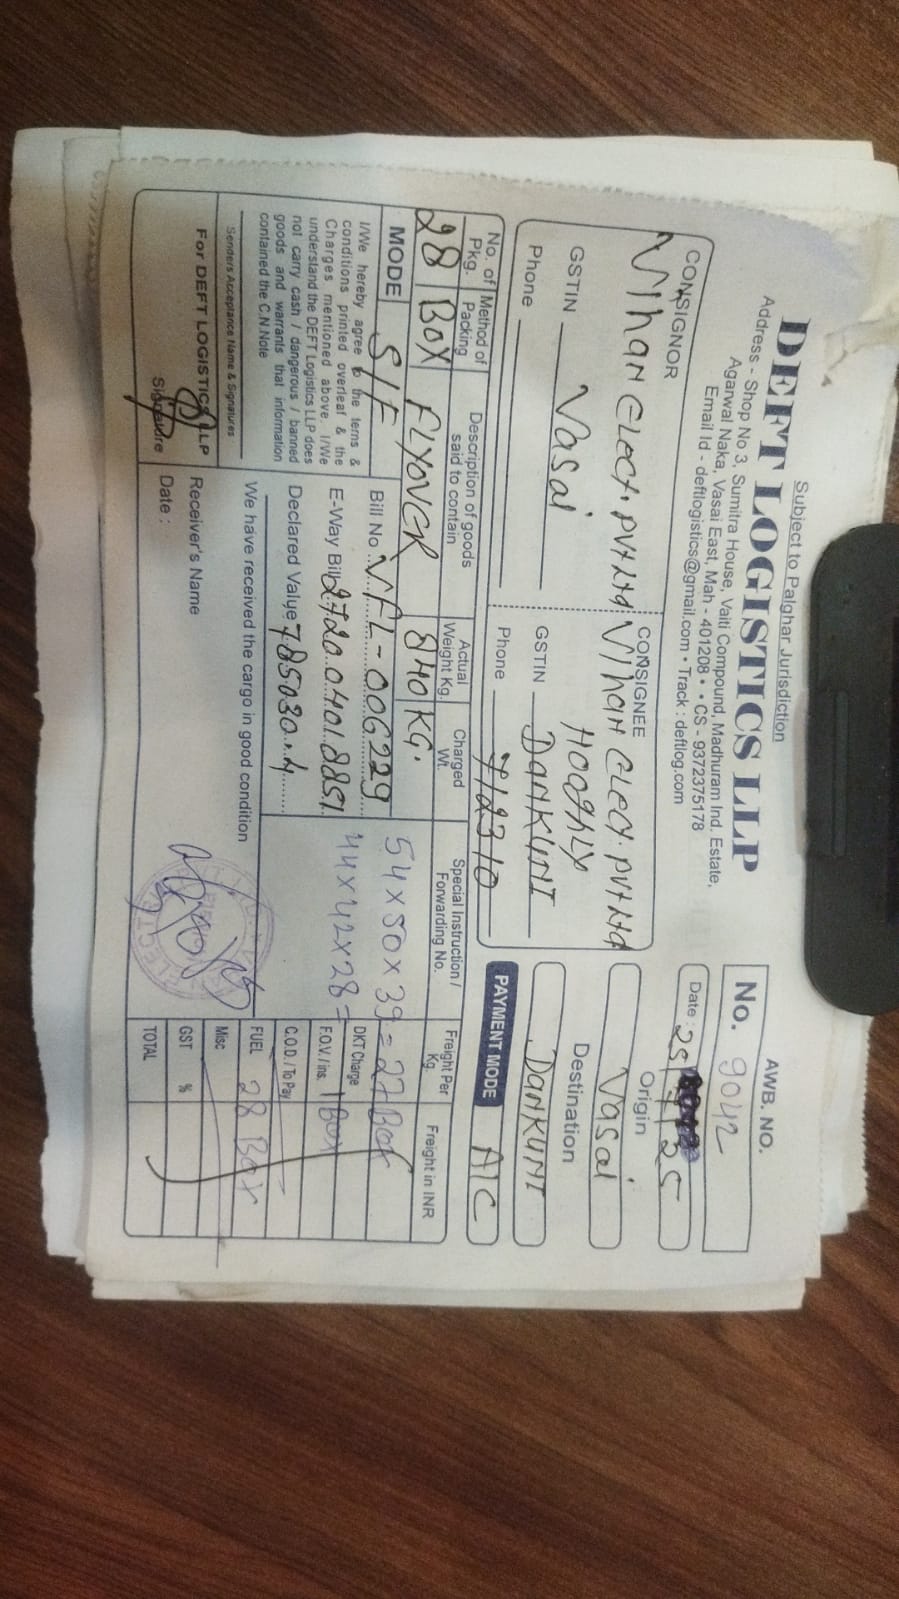 Subject to Palghar Jurisdiction
DEFT LOGISTICS LLP
Address - Shop No 3, Sumitra House, Vaiti Compound, Madhuram Ind. Estate,
Agarwal Naka, Vasai East, Mah - 401208 • • CS - 9372375178
Email Id - deftlogistics@gmail.com • Track : deftlog.com
AWB. NO.
No. 9042
Date : 25/ /25
CONSIGNOR
Vihan Elect. Pvt Ltd
Vasai
GSTIN
Phone
CONSIGNEE
Vihan Elect. Pvt Ltd
HOOGHLY
GSTIN DANKUNI
Phone 712310
Origin
Vasai
Destination
DANKUNI
PAYMENT MODE A/C
No. of Pkg.
Method of Packing
Description of goods said to contain
Actual Weight Kg.
Charged Wt.
Special Instruction / Forwarding No.
Freight Per Kg.
Freight in INR
28 BOX FLYOVER 840 KG.
54 x 50 x 39 = 27 Box
44 x 42 x 28 = 1 Box
28 Box
MODE S/F
Bill No. VFL-006229
E-Way Bill 272004018851
Declared Value 785030.4
DKT Charge
F.O.V. / ins.
C.O.D. / To Pay
FUEL
Misc
GST %
TOTAL
I/We hereby agree to the terns &
conditions printed overleaf & the
Charges mentioned above. I/We
understand the DEFT Logistics LLP does
not carry cash / dangerous / banned
goods and warrants that information
contained the C.N.Note
Senders Acceptance Name & Signatures
For DEFT LOGISTICS LLP
Signature
We have received the cargo in good condition
Receiver's Name
Date :